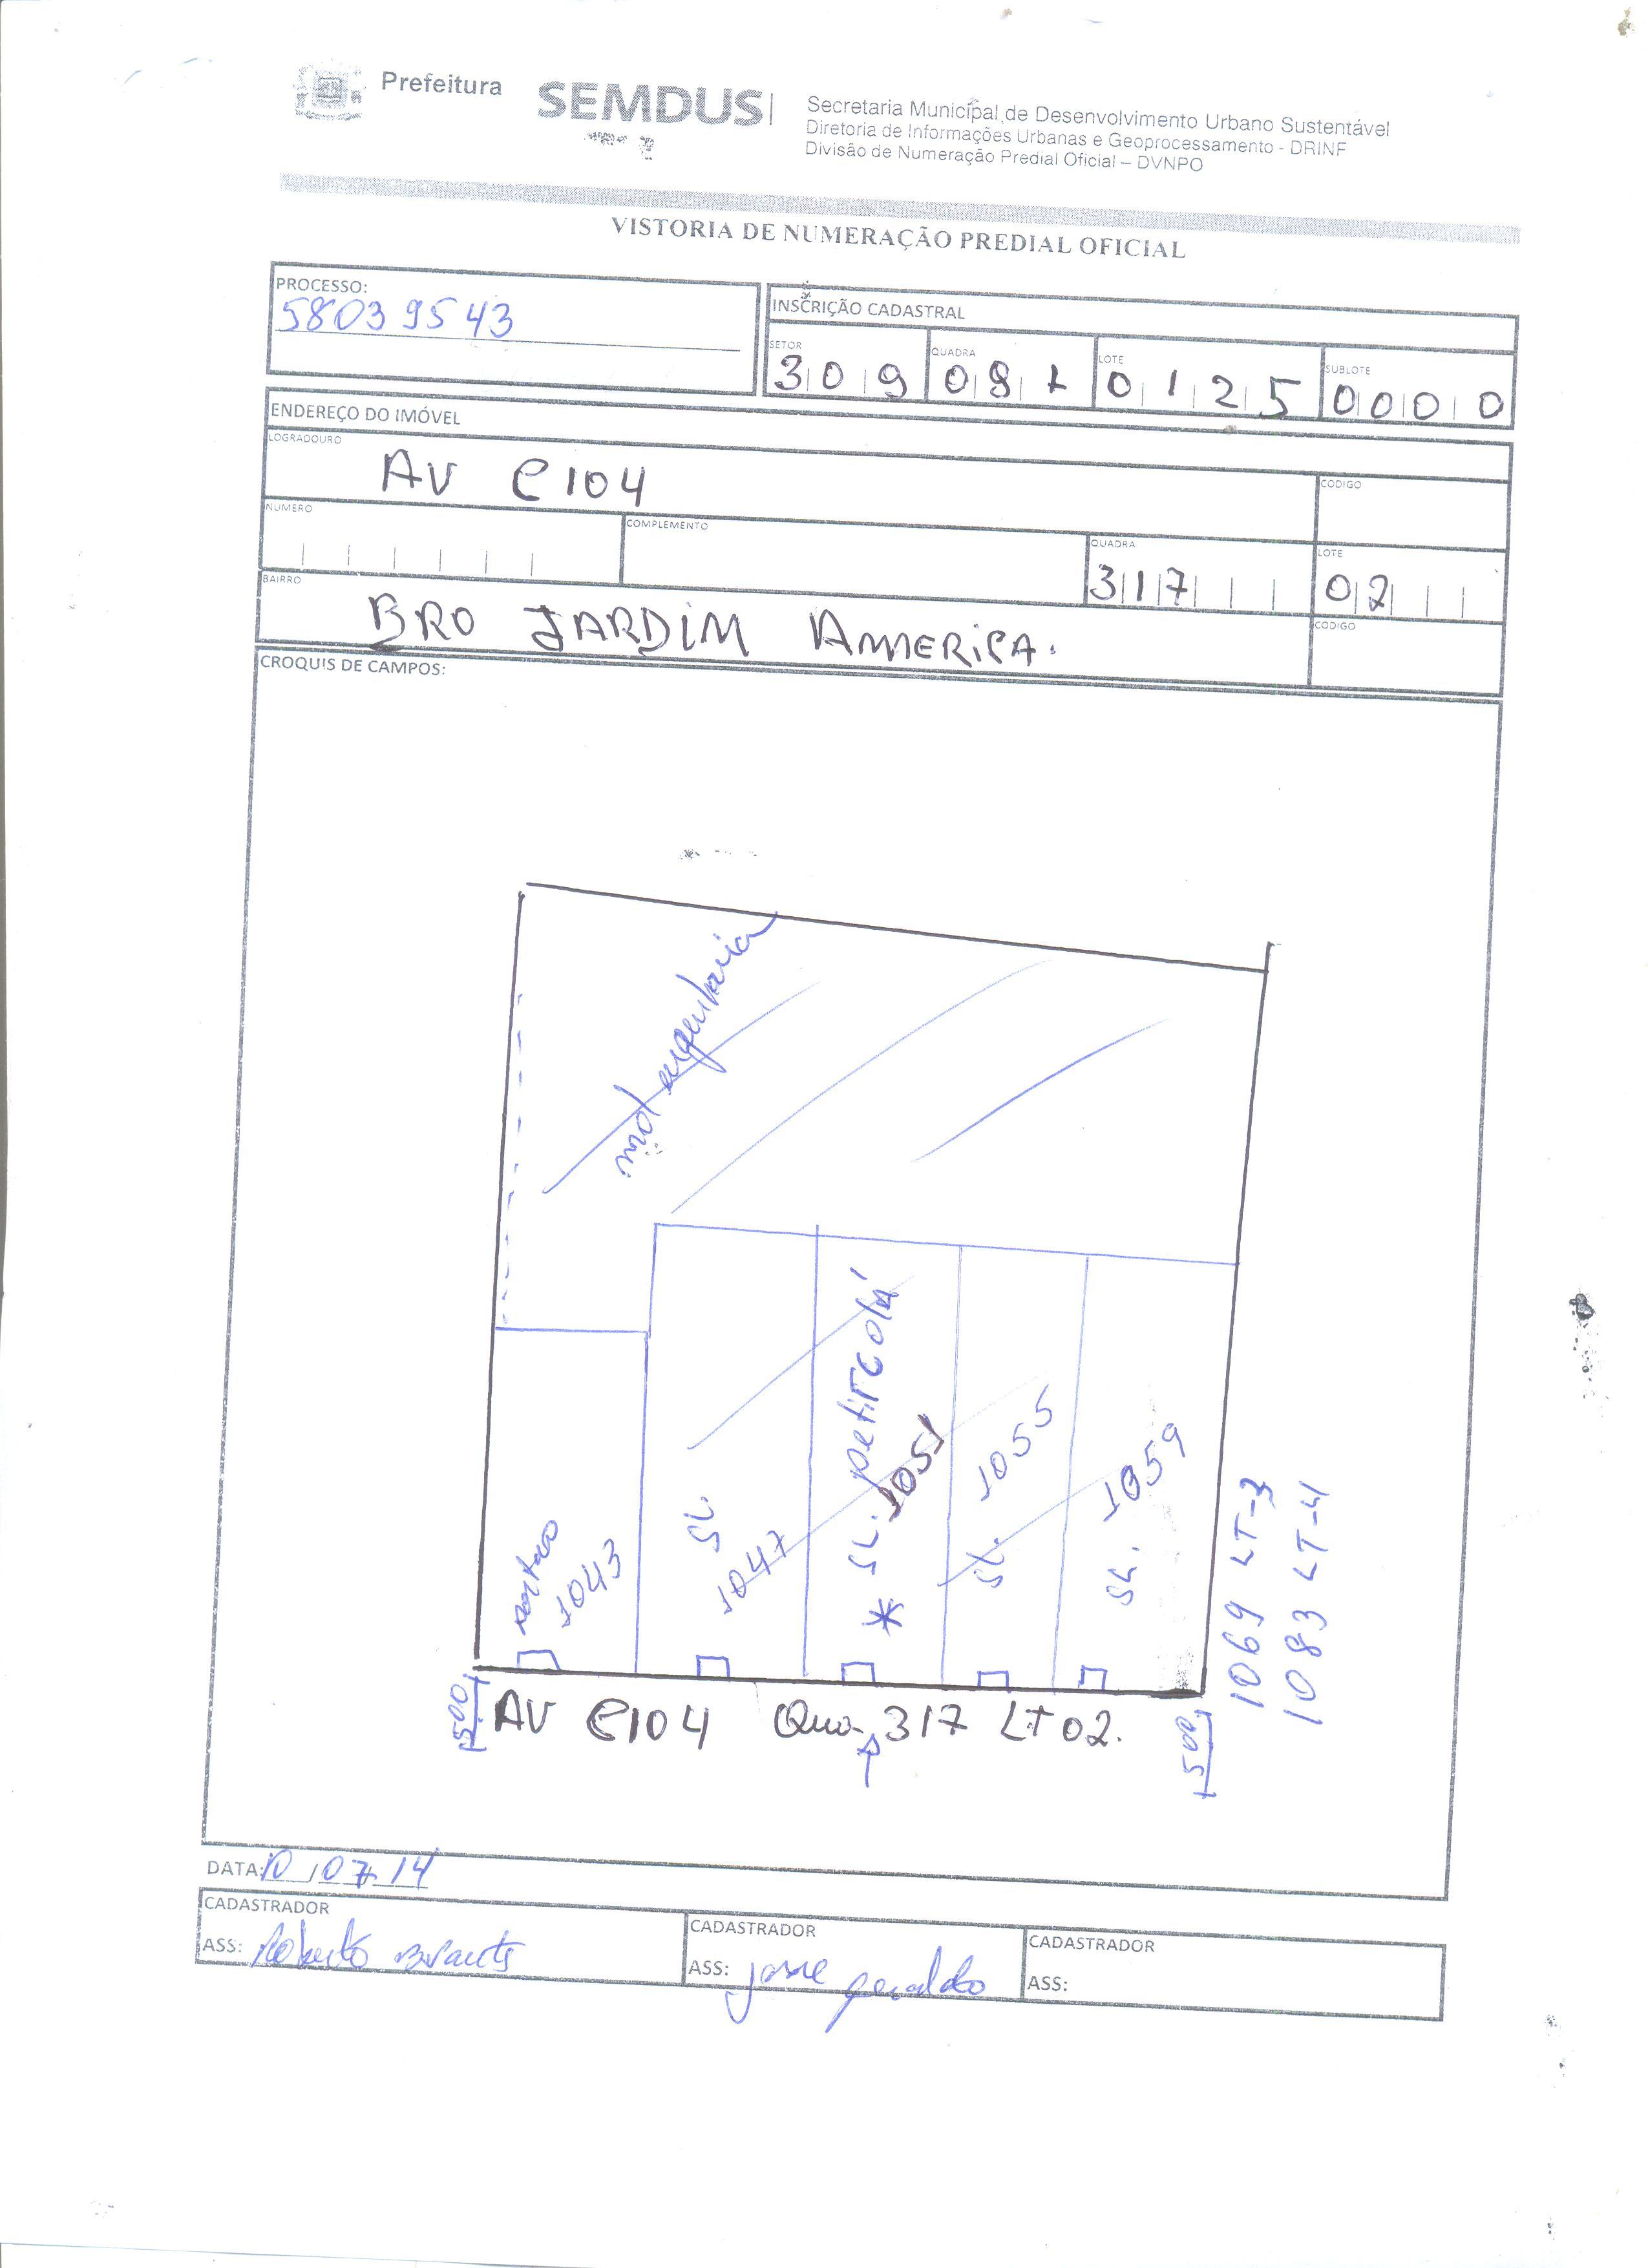 Prefeitura
SEMDUS
Secretaria Municipal de Desenvolvimento Urbano Sustentável
Diretoria de Informações Urbanas e Geoprocessamento - DRINF
Divisão de Numeração Predial Oficial – DVNPO
VISTORIA DE NUMERAÇÃO PREDIAL OFICIAL
PROCESSO:
58039543
INSCRIÇÃO CADASTRAL
SETOR QUADRA LOTE SUBLOTE
309 081 0125 0000
ENDEREÇO DO IMÓVEL
LOGRADOURO CODIGO
AV C104
NUMERO COMPLEMENTO QUADRA LOTE
317 02
BAIRRO CODIGO
BRO JARDIM AMERICA.
CROQUIS DE CAMPOS:
portao
1043
SL.
1047
* SL. 1051
SL. 1055
SL. 1059
1069 LT-3
1083 LT-4
500
AV C104 Qua- 317 LT 02.
500
DATA: 10/07/14
CADASTRADOR
ASS: Roberto
CADASTRADOR
ASS: jose geraldo
CADASTRADOR
ASS: